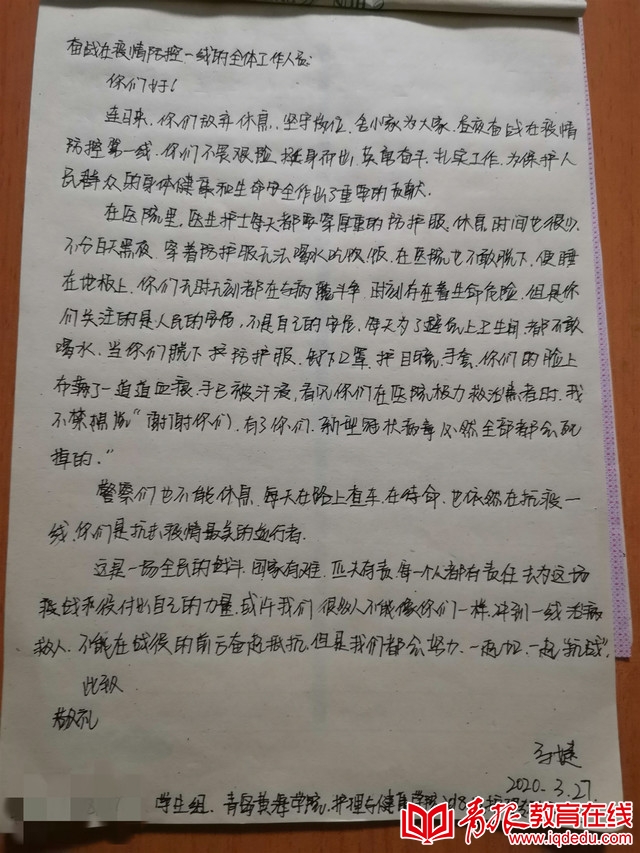 奋战在疫情防控一线的全体工作人员:
你们好!
连日来,你们放弃休息,坚守岗位,舍小家为大家,昼夜奋战在疫情
防控第一线,你们不畏艰险,挺身而出,英勇奋斗,扎实工作,为保护人
民群众的身体健康和生命安全作出了重要的贡献。
在医院里,医生护士每天都要穿厚重的防护服,休息时间也很少,
不分白天黑夜,穿着防护服无法喝水吃饭,在医院也不敢脱下,便睡
在地板上,你们无时无刻都在与病魔斗争,时刻存在着生命危险,但是你
们关注的是人民的安危,不是自己的安危,每天为了避免上卫生间,都不敢
喝水,当你们脱下防护服,卸下口罩,护目镜,手套,你们的脸上
布满了一道道血痕,手已被汗浸,看见你们在医院极力救治患者时,我
不禁想说“谢谢你们,有了你们,新型冠状病毒必然全部都会死
掉的。”
警察们也不能休息,每天在路上查车,在待命,也依然在抗疫一
线,你们是抗击疫情最美的逆行者。
这是一场全民的战斗,国家有难,匹夫有责,每一个人都有责任去为这场
疫战役付出自己的力量,或许我们很多人不能像你们一样,冲到一线治病
救人,不能在战役的前方奋起抵抗,但是我们都会努力,一起加,一起“抗战”。
此致
敬礼
2020.3.27
学生组、青岛黄海学院、护理与健康学院、2018
青报教育在线
www.iqdedu.com